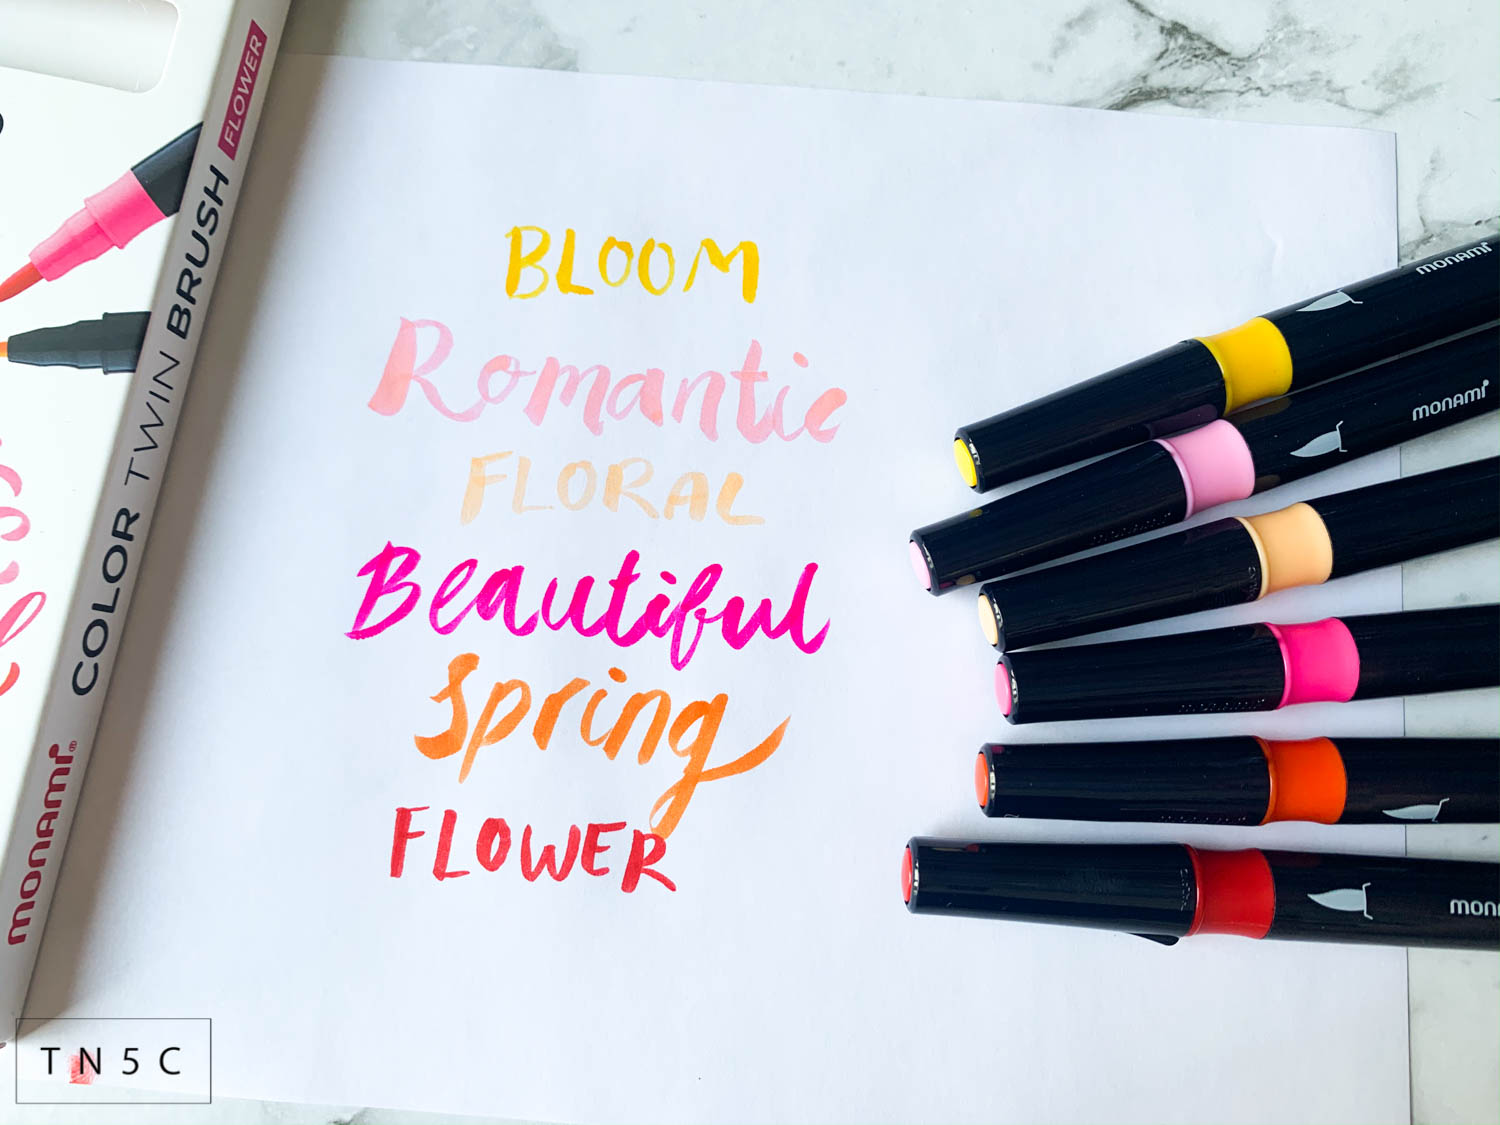 monami® COLOR TWIN BRUSH FLOWER
BLOOM
Romantic
FLORAL
Beautiful
Spring
FLOWER
monami
monami
TN5C